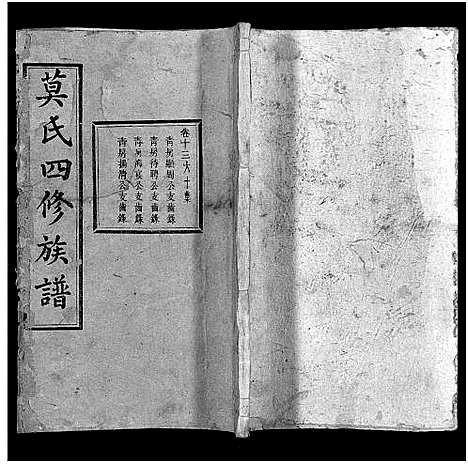 莫氏四修族譜
卷十三 六十葉
青房 周公支齒錄
青房待聘公支齒錄
青房 公支齒錄
青房 公支齒錄